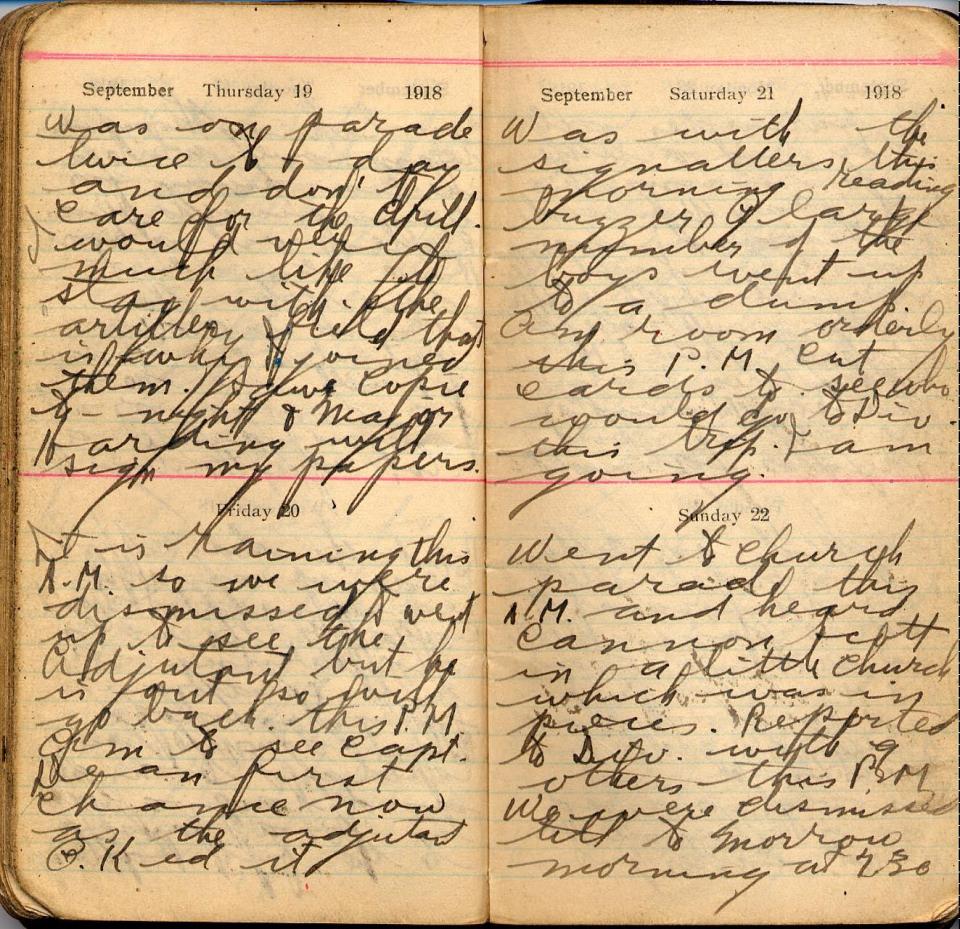 September Thursday 19 1918
Was on parade
twice to-day
and don't
care for the drill.
I would very
much like to
stay with the
artillery field that
is why I joined
them.
to-night & Major
Harding will
sign my papers.
Friday 20
It is raining this
A.M. so we were
dismissed I went
up to see the
Adjutant but he
is out so will
go back this P.M.
Am to see Capt.
Dean first
chance now
as the adjutant
O.Ked it
September Saturday 21 1918
Was with the
signallers this
morning reading
buzzer a large
number of the
boys went up
to a dump
Am room orderly
this P.M. Cut
cards to see who
would go to Div.
this trip. I am
going.
Sunday 22
Went to church
parade this
A.M. and heard
Cannon Scott
in a little church
which was in
pieces. Reported
to Div. with 9
others this P.M.
We were dismissed
till to morrow
morning at 7.30